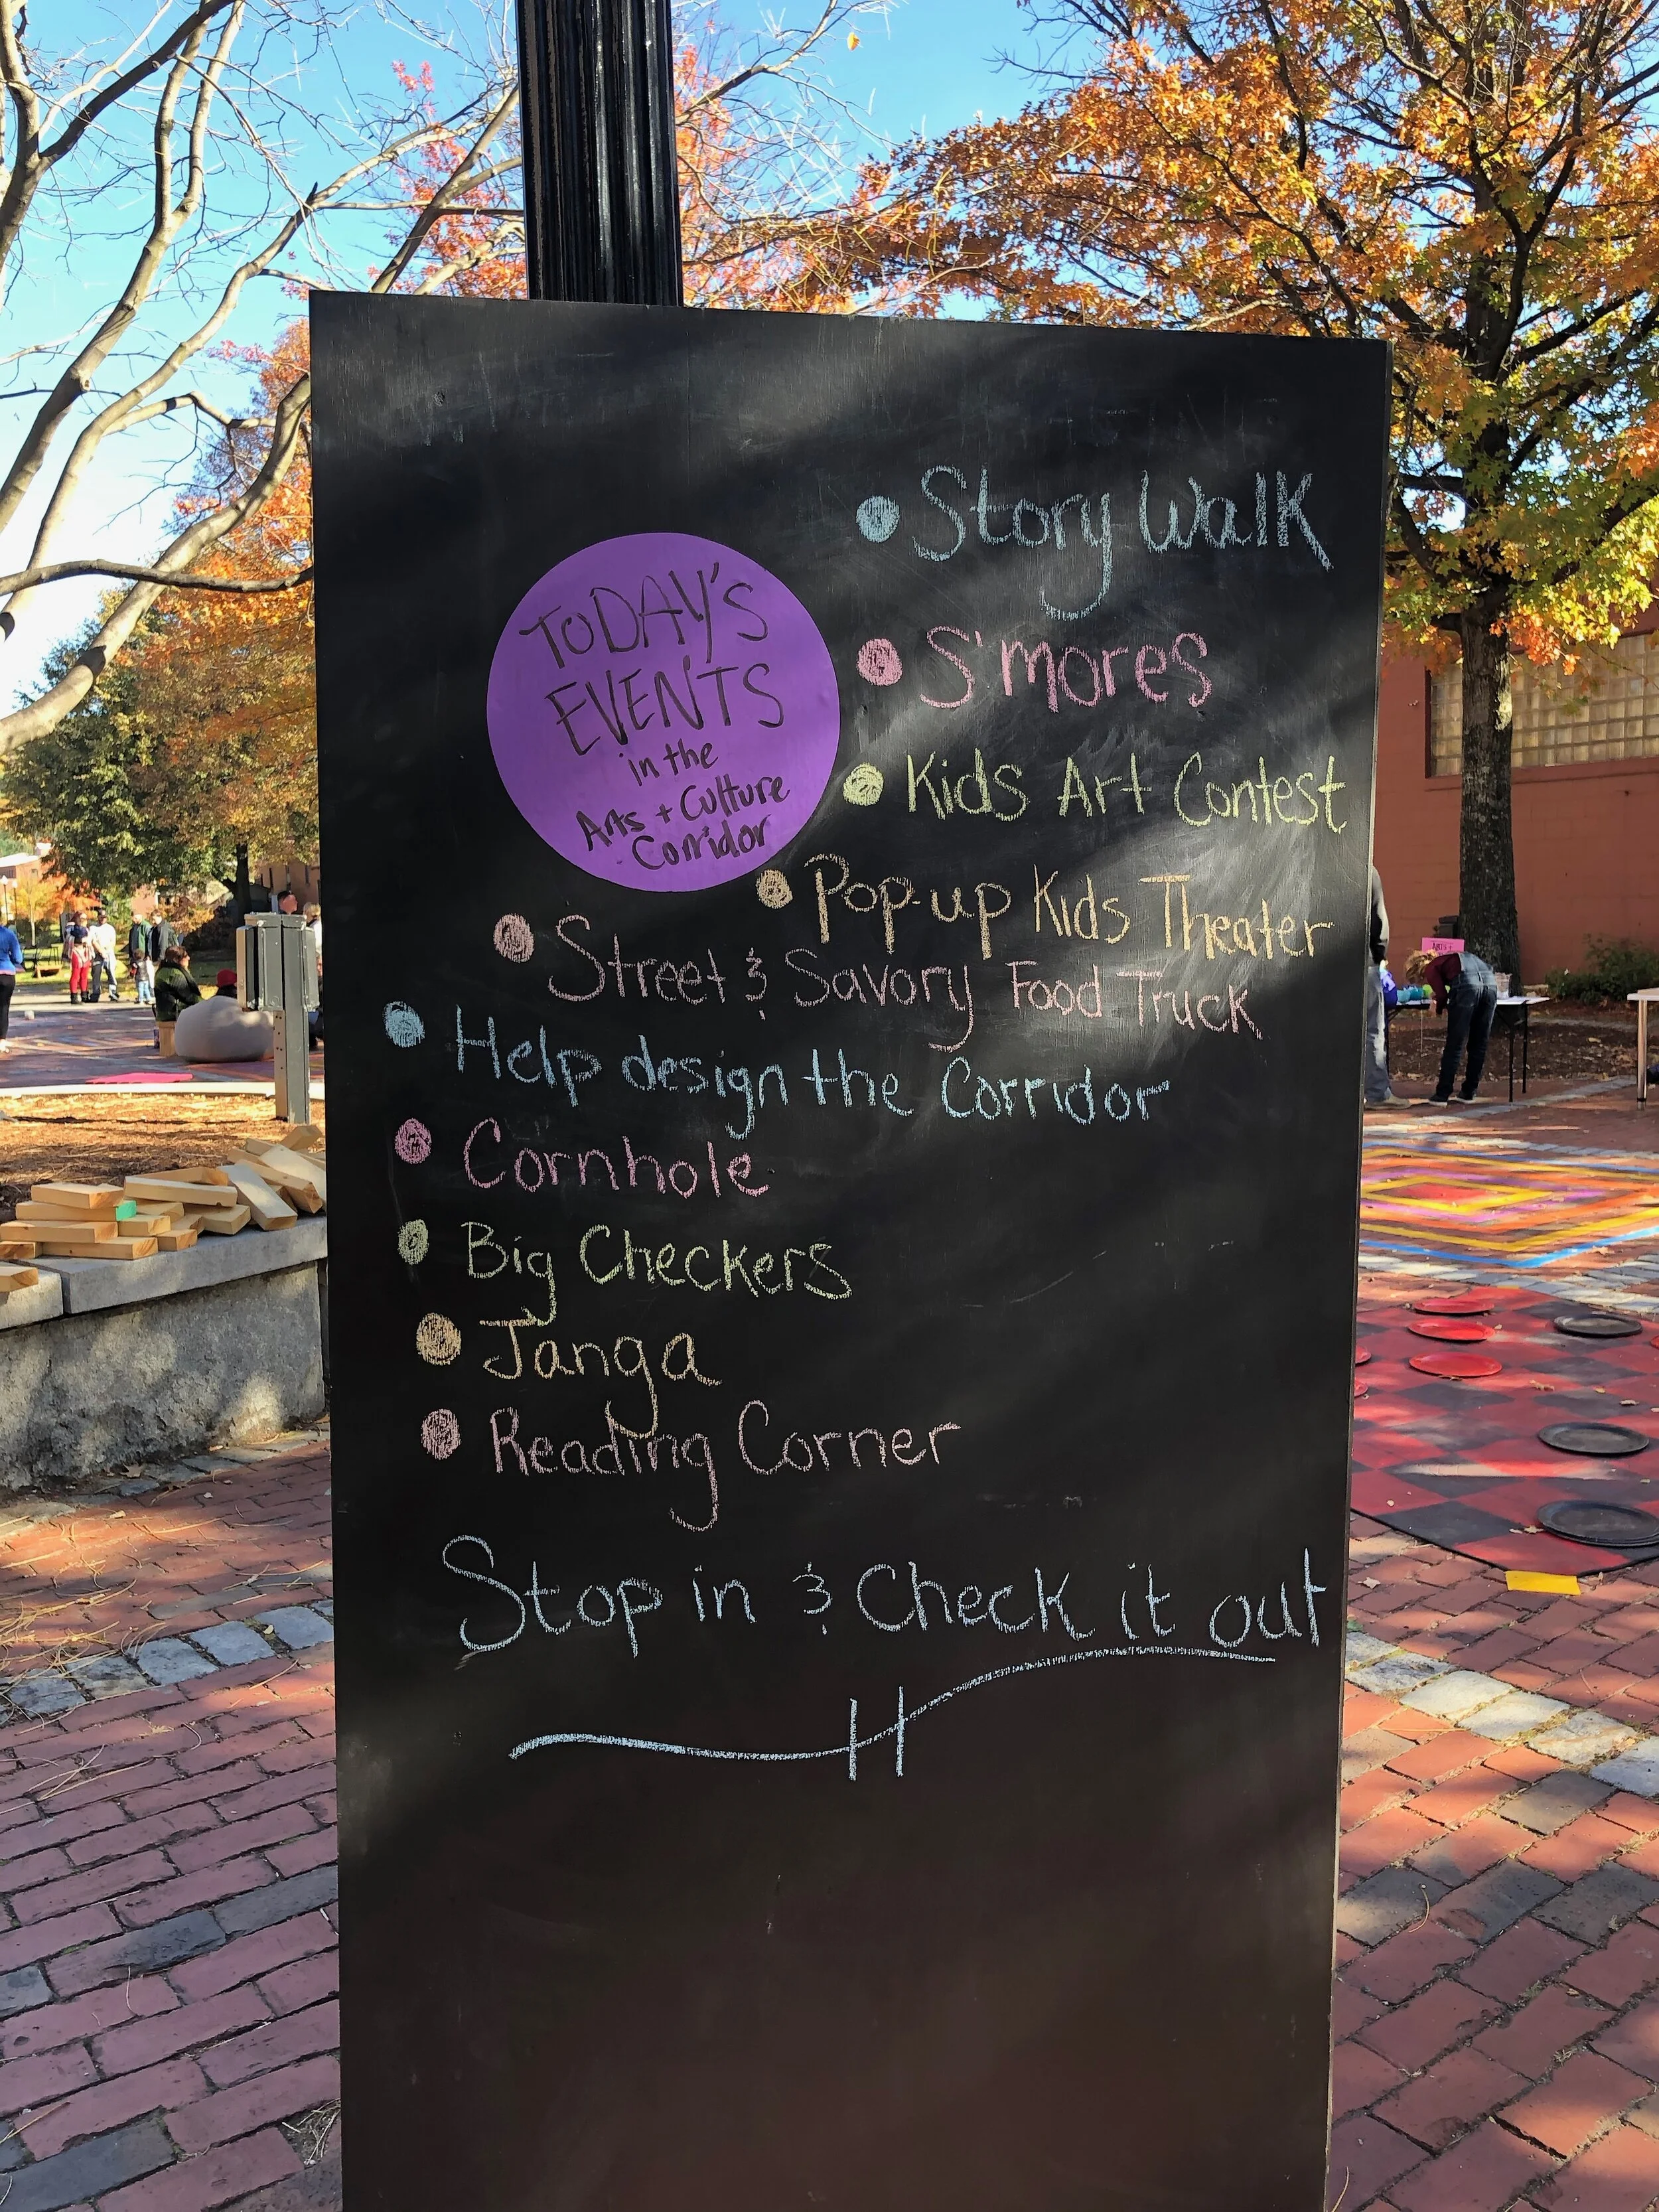 TODAY'S
EVENTS
in the
Arts + Culture
Corridor
• Story Walk
• S'mores
• Kids Art Contest
• Pop-up Kids Theater
• Street & Savory Food Truck
• Help design the Corridor
• Cornhole
• Big Checkers
• Janga
• Reading Corner
Stop in & Check it out